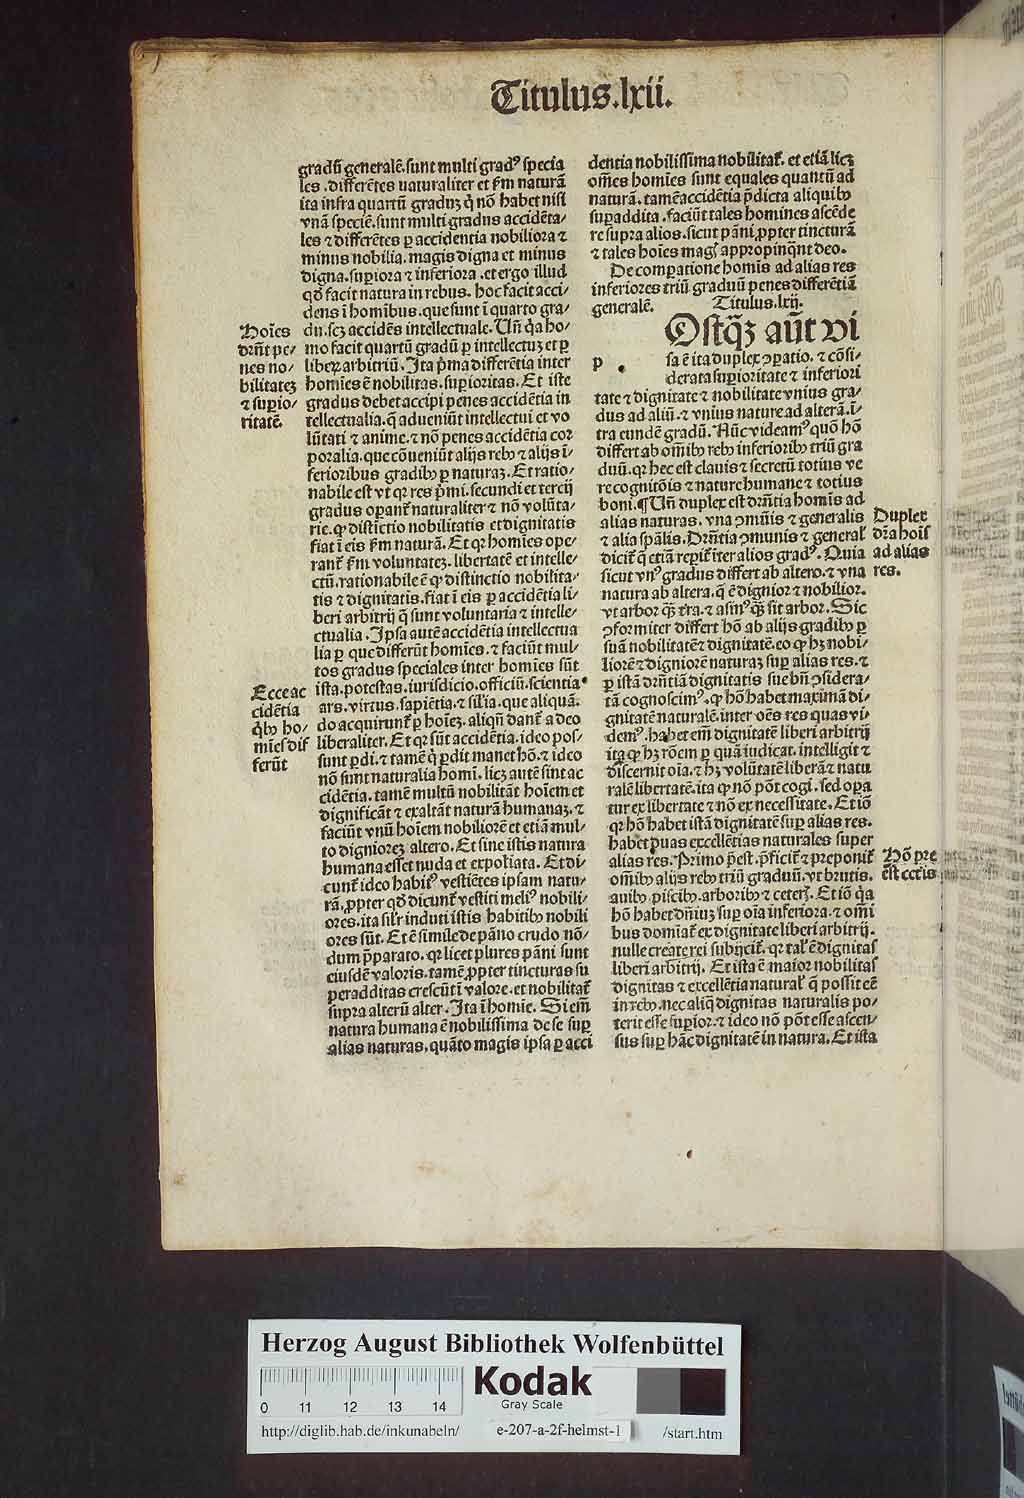 Titulus.lxii.
gradū generalē.sunt multi gradꝰ specia
les.differētes naturaliter et ẜm naturā
ita infra quartū graduꝫ q̇ nō habet nisi
vnā speciē.sunt multi gradus accidēta/
les ⁊ differētes ꝑ accidentia nobiliora ⁊
minus nobilia.magis digna et minus
digna.suꝑiora ⁊ inferiora.et ergo illud
qđ facit natura in rebus. hoc facit acci/
dens ī homībus.que sunt ī quarto gra/
du.scꝫ accidēs intellectuale.Uñ q̇a ho/
mo facit quartū gradū ꝑ intellectuꝫ et ꝑ
liberꝫ arbitriū.Ita p̄ma differētia inter
homīes ē nobilitas.suꝑioritas. Et iste
gradus debet accipi penes accidētia in
tellectualia.q̄ adueniūt intellectui et vo
lūtati ⁊ anime.⁊ nō penes accidētia cor
poralia.que cōueniūt alijs rebꝰ ⁊ alijs ī/
ferioribus gradibꝰ ꝑ naturaꝫ. Et ratio/
nabile est vt qꝛ res p̄mi.secundi et tercij
gradus oꝑant̄ naturaliter ⁊ nō volūta/
rie.ꝙ distīctio nobilitatis et dignitatis
fiat ī eis ẜm naturā. Et qꝛ homīes ope/
rant̄ ẜm voluntateꝫ.libertatē et intelle/
ctū.rationabile ē ꝙ distinctio nobilita/
tis ⁊ dignitatis.fiat ī eis ꝑ accidētia li/
beri arbitrij q̄ sunt voluntaria ⁊ intelle/
ctualia.Ipsa autē accidētia intellectua
lia ꝑ que differūt homīes.⁊ faciūt mul/
tos gradus speciales inter homīes sūt
ista.potestas.iurisdicio.officiū.scientia.
ars.virtus.sapiētia.⁊ sil'ia.que aliquā.
do acquirunt̄ ꝑ hoīeꝫ.aliqñ dant̄ a deo
liberaliter. Et qꝛ sūt accidētia.ideo pos/
sunt ꝑdi.⁊ tamē q̇ ꝑdit manet hō.⁊ ideo
nō sunt naturalia homī.licꝫ autē sint ac
cidētia.tamē multū nobilitāt hoīem et
dignificāt ⁊ exaltāt naturā humanaꝫ.⁊
faciūt vnū hoīem nobiliorē et etiā mul/
to dignioreꝫ altero. Et sine istis natura
humana esset nuda et expoliata. Et di/
cunt̄ ideo habitꝰ vestiētes ipsam natu/
rā.ꝓpter qđ dicunt̄ vestiti meliꝰ nobili/
ores.ita sil'r induti istis habitibꝰ nobili
ores sūt. Et ē simile de pāno crudo nō/
dum p̄parato.qꝛ licet plures pāni sunt
eiusdē valoris.tamē ꝓpter tincturas su
peradditas crescūt ī valore.et nobilitat̄
supra alterū alter.Ita ī homīe. Si em̄
natura humana ē nobilissima de se suꝑ
alias naturas.quāto magis ipsa ꝑ acci
Hoīes
drñt pe/
nes no/
bilitateꝫ
⁊ suꝑio/
ritatē.
Ecce ac
cidētia
q̇bꝰ ho/
mīes dif
ferūt
dentia nobilissima nobilitat̄. et etiā licꝫ
om̄es homīes sunt equales quantū ad
naturā.tamē accidētia p̄dicta aliquibꝰ
suꝑaddita.faciūt tales homines ascēde
re supra alios.sicut pāni ꝓpter tincturā
⁊ tales hoīes magꝭ appropinq̄nt deo.
De comꝑatione homīs ad alias res
inferiores triū graduū penes differētiā
generalē. Titulus.lxij.
p OStꝙꝫ aūt vi
sa ē ita duplex ꝯparatio.⁊ cōsi/
derata suꝑioritate ⁊ inferiori
tate ⁊ dignitate ⁊ nobilitate vnius gra/
dus ad aliū.⁊ vnius nature ad alterā.ī/
tra eundē gradū.Nūc videamꝰ quō hō
differt ab om̄ibꝰ rebꝰ inferioribꝰ triū gra
duū.qꝛ hec est clauis ⁊ secretū totius ve
re cognitōis ⁊ nature humane ⁊ totius
boni.¶Uñ duplex est drñtia homīs ad
alias naturas. vna ꝯmūis ⁊ generalis
⁊ alia sp̄alis.Drñtia ꝯmunis ⁊ general'
dicit̄ q̄ etiā reꝑit̄ īter alios gradꝰ. Quia
sicut vnꝰ gradus differt ab altero.⁊ vna
natura ab altera.q̄ ē dignior ⁊ nobilior.
vt arbor q̄ꝫ t̄ra.⁊ asinꝰ q̄ꝫ sit arbor. Sic
ꝯformiter differt hō ab alijs gradibꝰ ꝑ
suā nobilitatē ⁊ dignitatē.eo ꝙ hꝫ nobi/
liorē ⁊ digniorē naturaꝫ suꝑ alias res.⁊
ꝑ istā drñtiā dignitatis sue bñ ꝯsidera/
tā cognoscimꝰ.ꝙ hō habet maximā di/
gnitatē naturalē.inter oēs res quas vi/
demꝰ.habet em̄ dignitatē liberi arbitrij
ita ꝙ hꝫ rōem ꝑ quā iudicat. intelligit ⁊
discernit oīa.⁊ hꝫ volūtatē liberā ⁊ natu
ralē libertatē.ita ꝙ nō pōt cogi.sed oꝑa
tur ex libertate ⁊ nō ex necessitate. Et iō
qꝛ hō habet istā dignitatē suꝑ alias res.
habet ꝑuas excellētias naturales super
alias res.Primo p̄est.p̄ficit̄ ⁊ preponit̄
om̄ibꝰ alijs rebꝰ triū graduū.vt brutis.
auibꝰ piscibꝰ.arboribꝰ ⁊ ceterꝭ. Et iō q̇a
hō habet dñiuꝫ suꝑ oīa inferiora.⁊ om̄i
bus domīat̄ ex dignitate liberi arbitrij.
nulle create rei subijcit̄.qꝛ tal' ē dignitas
liberi arbitrij. Et ista ē maior nobilitas
dignitas ⁊ excellētia natural' q̄ possit eē
in rebꝰ.nec aliq̄ dignitas naturalis po/
terit esse suꝑior.⁊ ideo nō pōt esse ascen/
sus suꝑ hāc dignitatē in natura. Et ista
Duplex
dr̄a hoīs
ad alias
res.
Hō pre
est cet̄is
Herzog August Bibliothek Wolfenbüttel
0 11 12 13 14
Kodak
Gray Scale
http://diglib.hab.de/inkunabeln/ e-207-a-2f-helmst-1 /start.htm